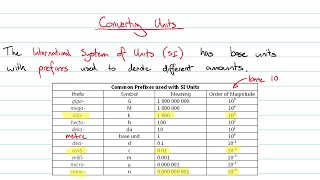 Converting Units
The International System of Units (SI) has base units
with prefixes used to denote different amounts.
base 10
Common Prefixes used with SI Units
Prefix Symbol Meaning Order of Magnitude
giga- G 1 000 000 000 10⁹
mega- M 1 000 000 10⁶
kilo- k 1 000 10³
hecto- h 100 10²
deka- da 10 10¹
metric base unit 1 10⁰
deci- d 0.1 10⁻¹
centi- c 0.01 10⁻²
milli- m 0.001 10⁻³
micro- µ 0.000 001 10⁻⁶
nano- n 0.000 000 001 10⁻⁹